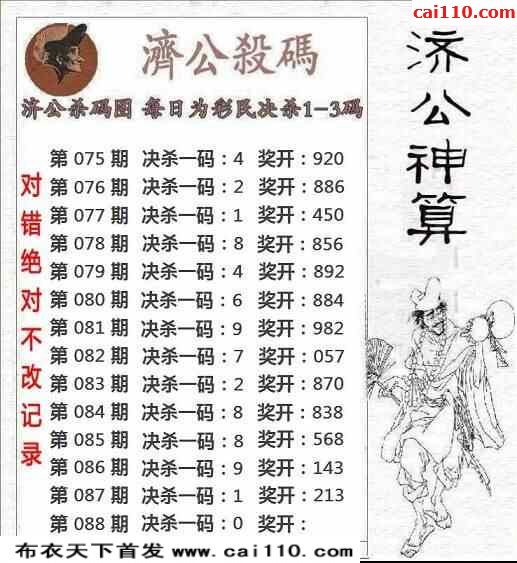 cai110.com
濟公殺碼
济公杀码图 每日为彩民决杀1-3码
对错绝对不改记录
第 075 期 决杀一码:4 奖开:920
第 076 期 决杀一码:2 奖开:886
第 077 期 决杀一码:1 奖开:450
第 078 期 决杀一码:8 奖开:856
第 079 期 决杀一码:4 奖开:892
第 080 期 决杀一码:6 奖开:884
第 081 期 决杀一码:9 奖开:982
第 082 期 决杀一码:7 奖开:057
第 083 期 决杀一码:2 奖开:870
第 084 期 决杀一码:8 奖开:838
第 085 期 决杀一码:8 奖开:568
第 086 期 决杀一码:9 奖开:143
第 087 期 决杀一码:1 奖开:213
第 088 期 决杀一码:0 奖开:
济公神算
布衣天下首发 www.cai110.com